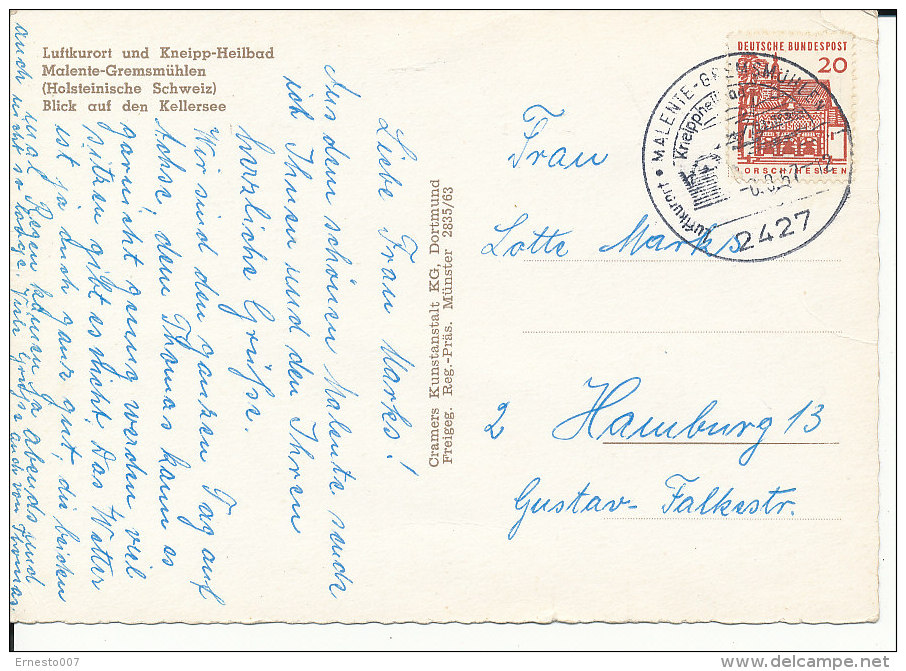 Luftkurort und Kneipp-Heilbad
Malente-Gremsmühlen
(Holsteinische Schweiz)
Blick auf den Kellersee
Liebe Frau Marks!
Aus dem schönen Malente sende
ich Ihnen und den Ihren
herzliche Grüße.
Wir sind den ganzen Tag auf
Achse, denn Thomas kann es
garnicht genug werden viel
sitzen gibt es nicht. Das Wetter
ist ja auch ganz gut, die beiden
mal Regen kamen ja abends und
auch nicht so lange. Viele Grüße auch von Thomas
Cramers Kunstanstalt KG, Dortmund
Freigeg. Reg.-Präs. Münster 2835/63
DEUTSCHE BUNDESPOST
20
LORSCH/HESSEN
Luftkurort • MALENTE-GREMSMÜHLEN
Kneippheilbad
2427
Frau
Lotte Marks
2 Hamburg 13
Gustav-Falkestr.
Ernesto007
www.delcampe.net